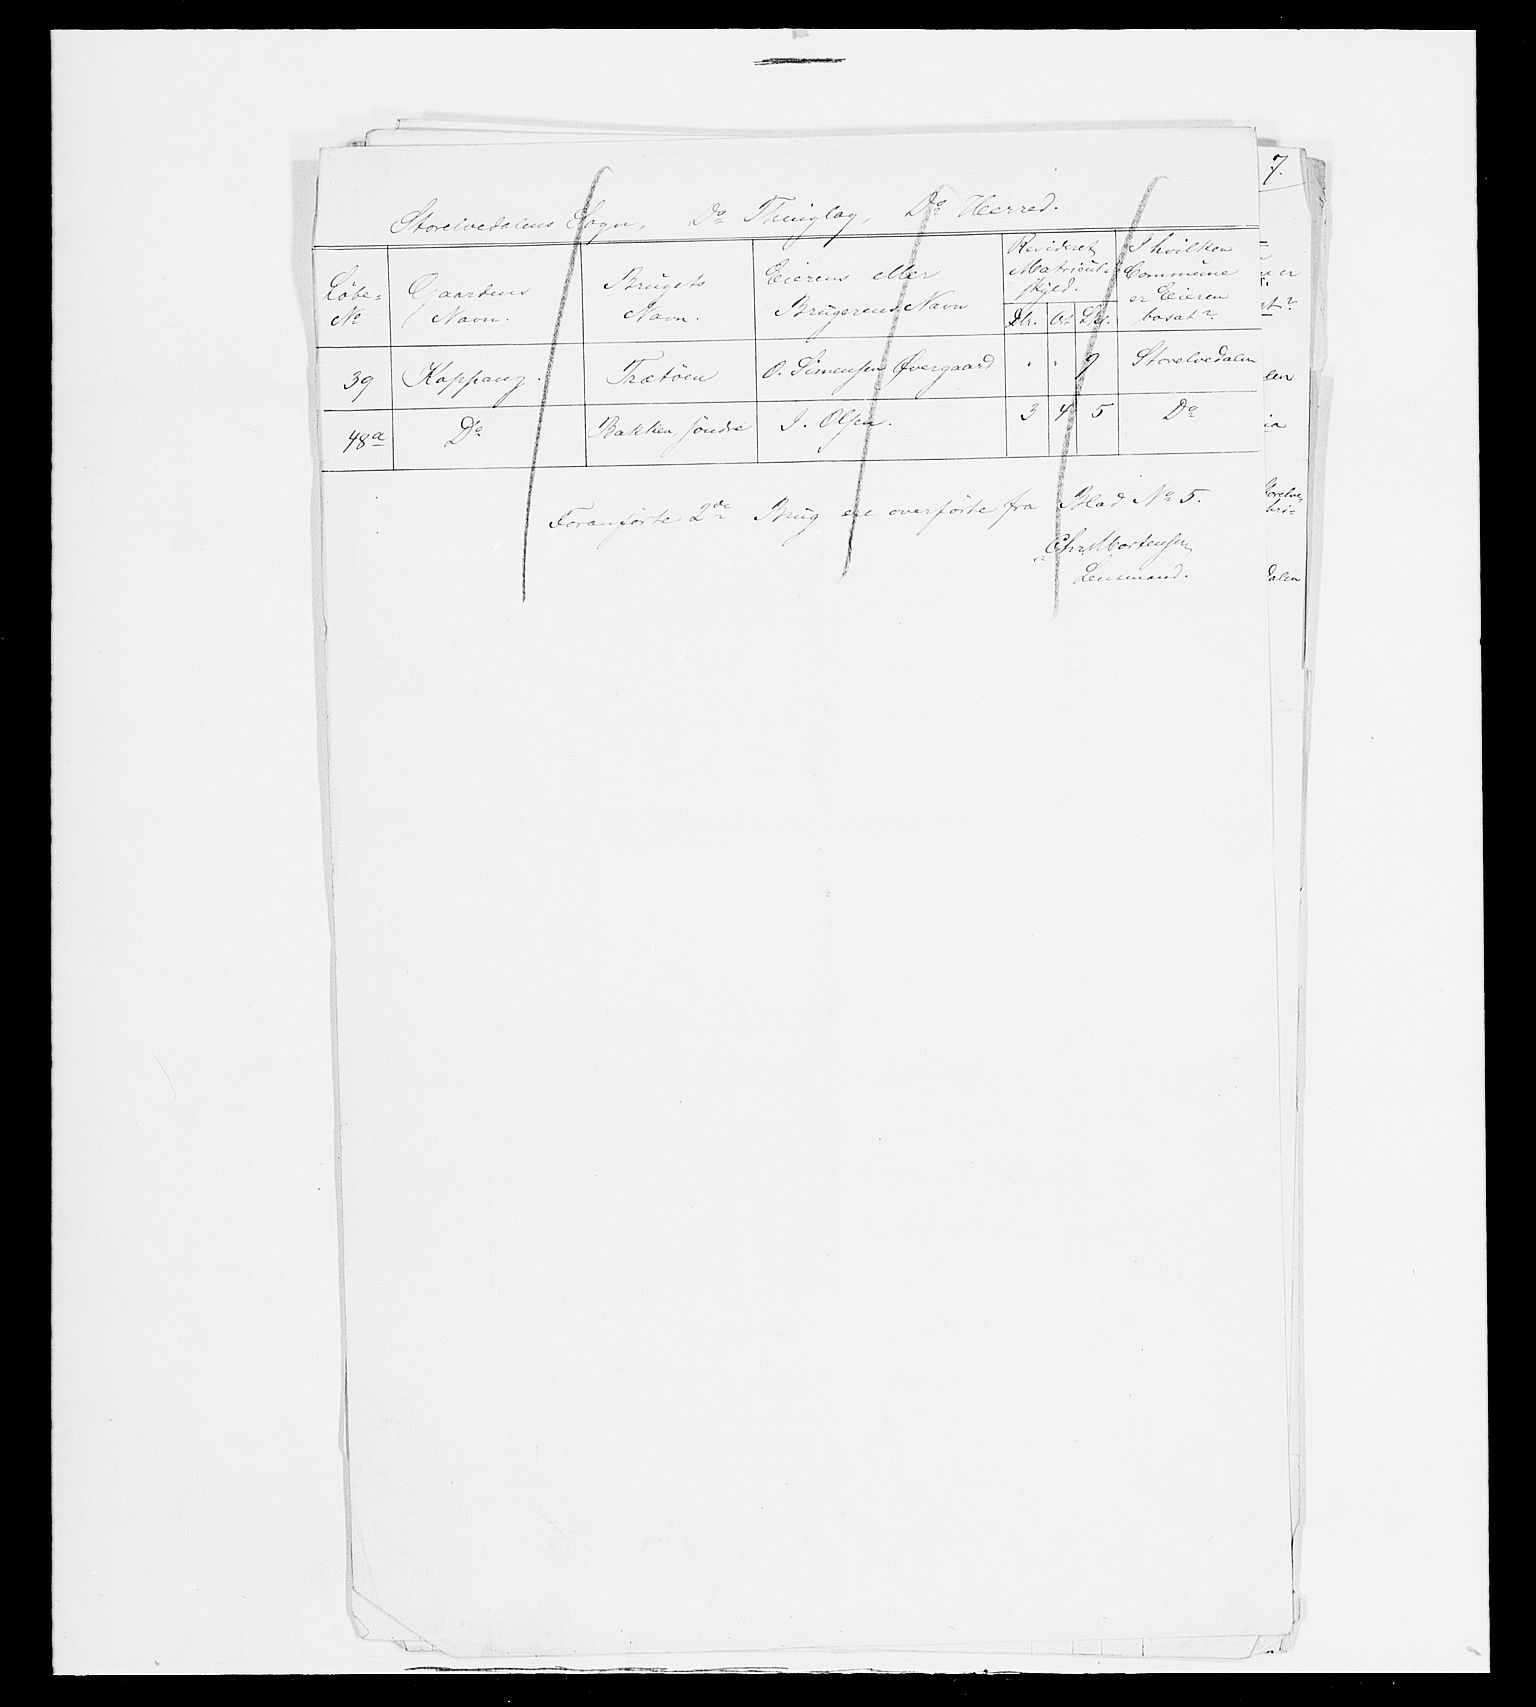 7.
Storelvedalens Sogn, Do Thinglag, Do Herred.
Löbe-No Gaardens Navn. Brugets Navn. Eierens eller Brugerens Navn Revideret Matricul-skyld. Dlr. Ort Sk. I hvilken Commune er Eieren bosat?
39 Koppang. Trætöen O. Simensen Övergaard " " 9 Storelvedalen
48a Do Bakken söndre J. Olsen. 3 4 5 Do
Foranförte 2de Brug ere overförte fra Blad No 5.
Chr. Mortensen
Lensmand.